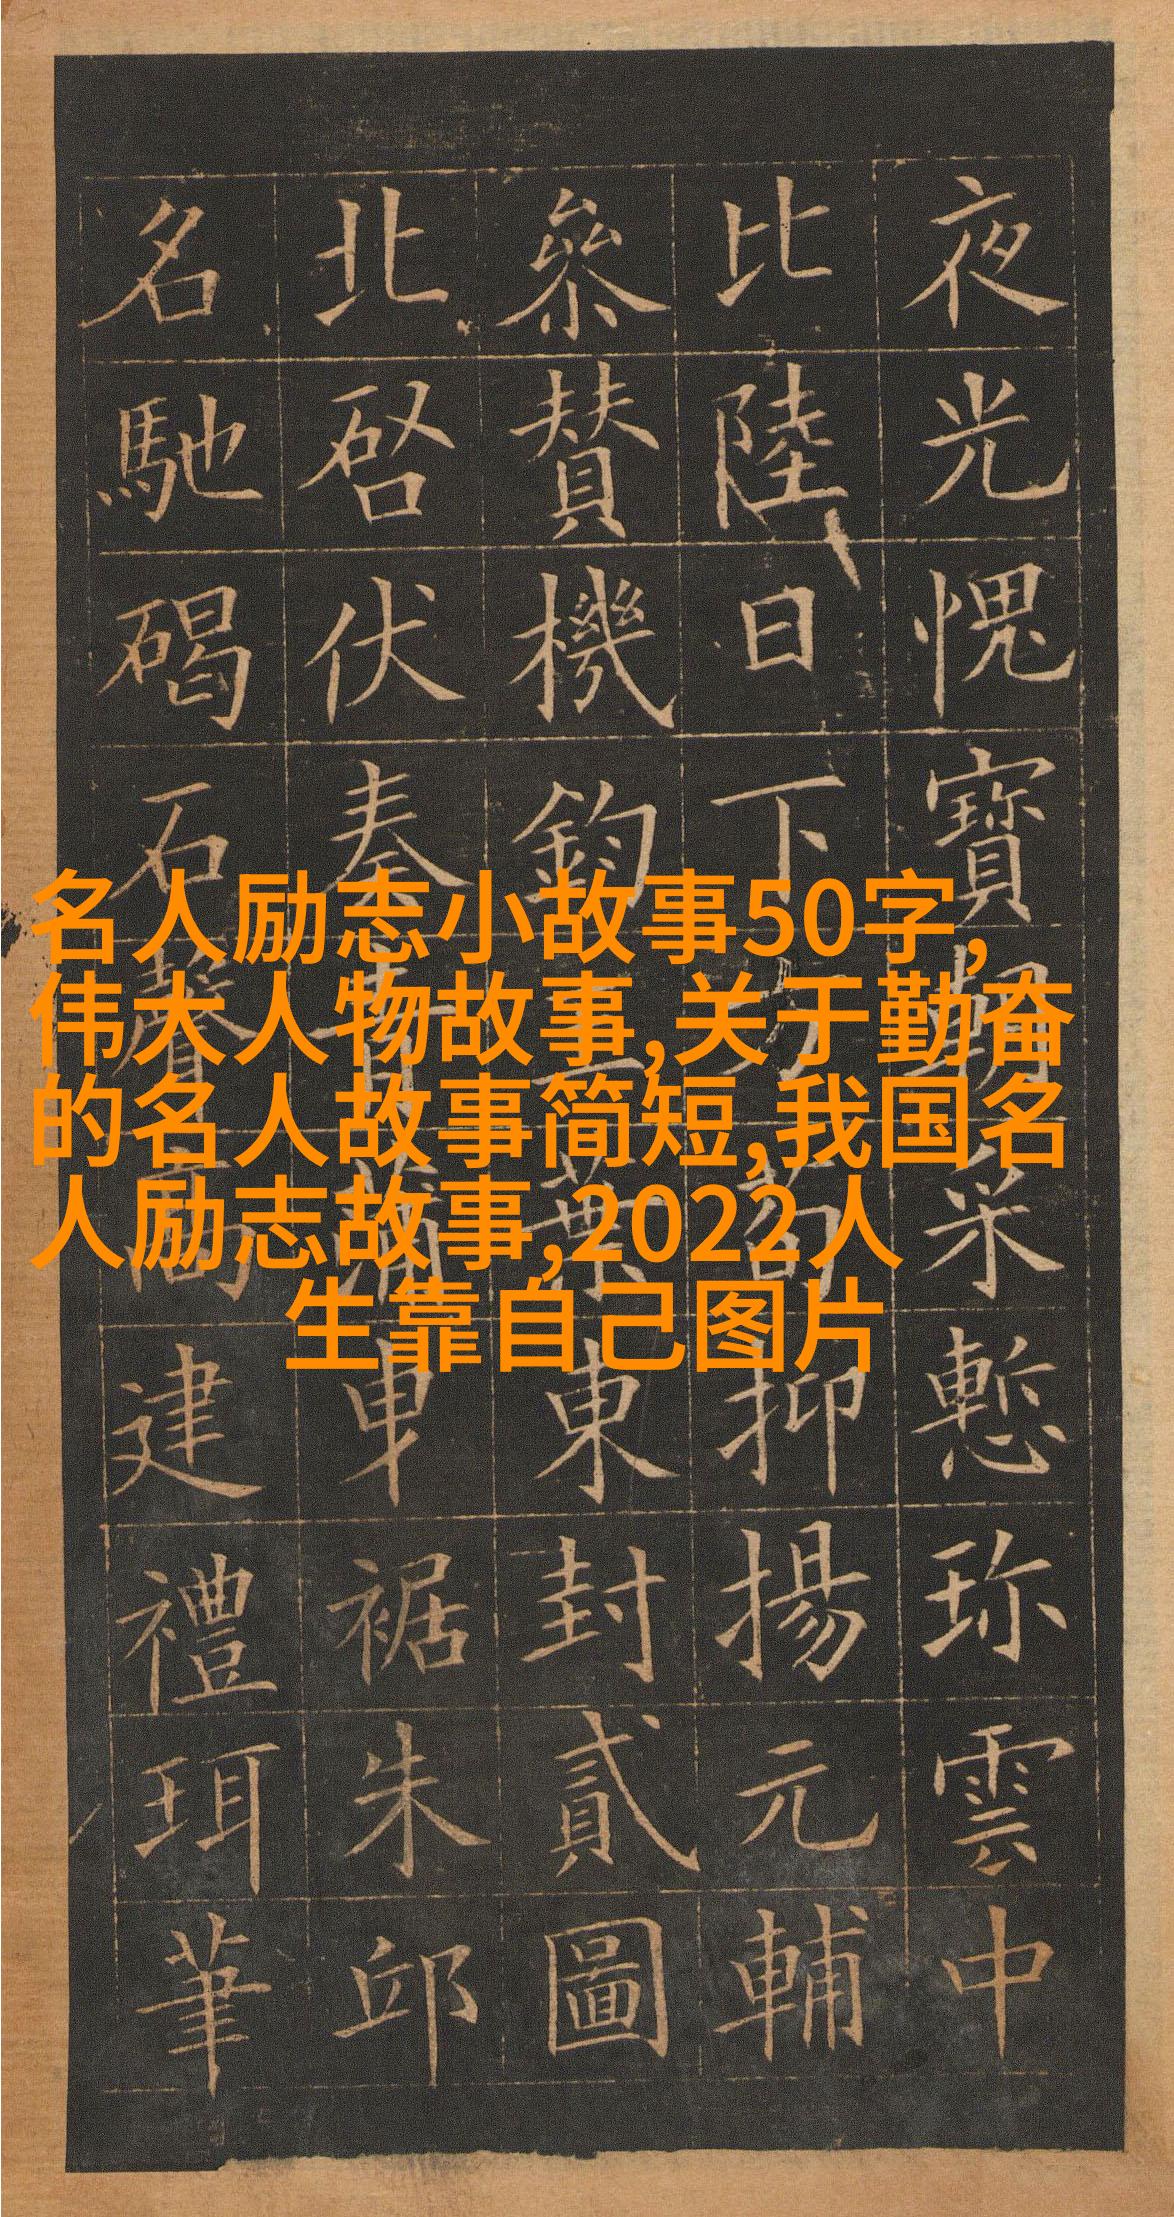 夜光愧寶朝采慙珎雲中
比陸日下苟抑揚元輔
參賛機鈞業東封貳圖
北啓伏奏蒲車裾朱邱
名馳碣石聲高建禮珥筆
名人励志小故事50字,
伟大人物故事,关于勤奋
的名人故事简短,我国名
人励志故事,2022人
生靠自己图片